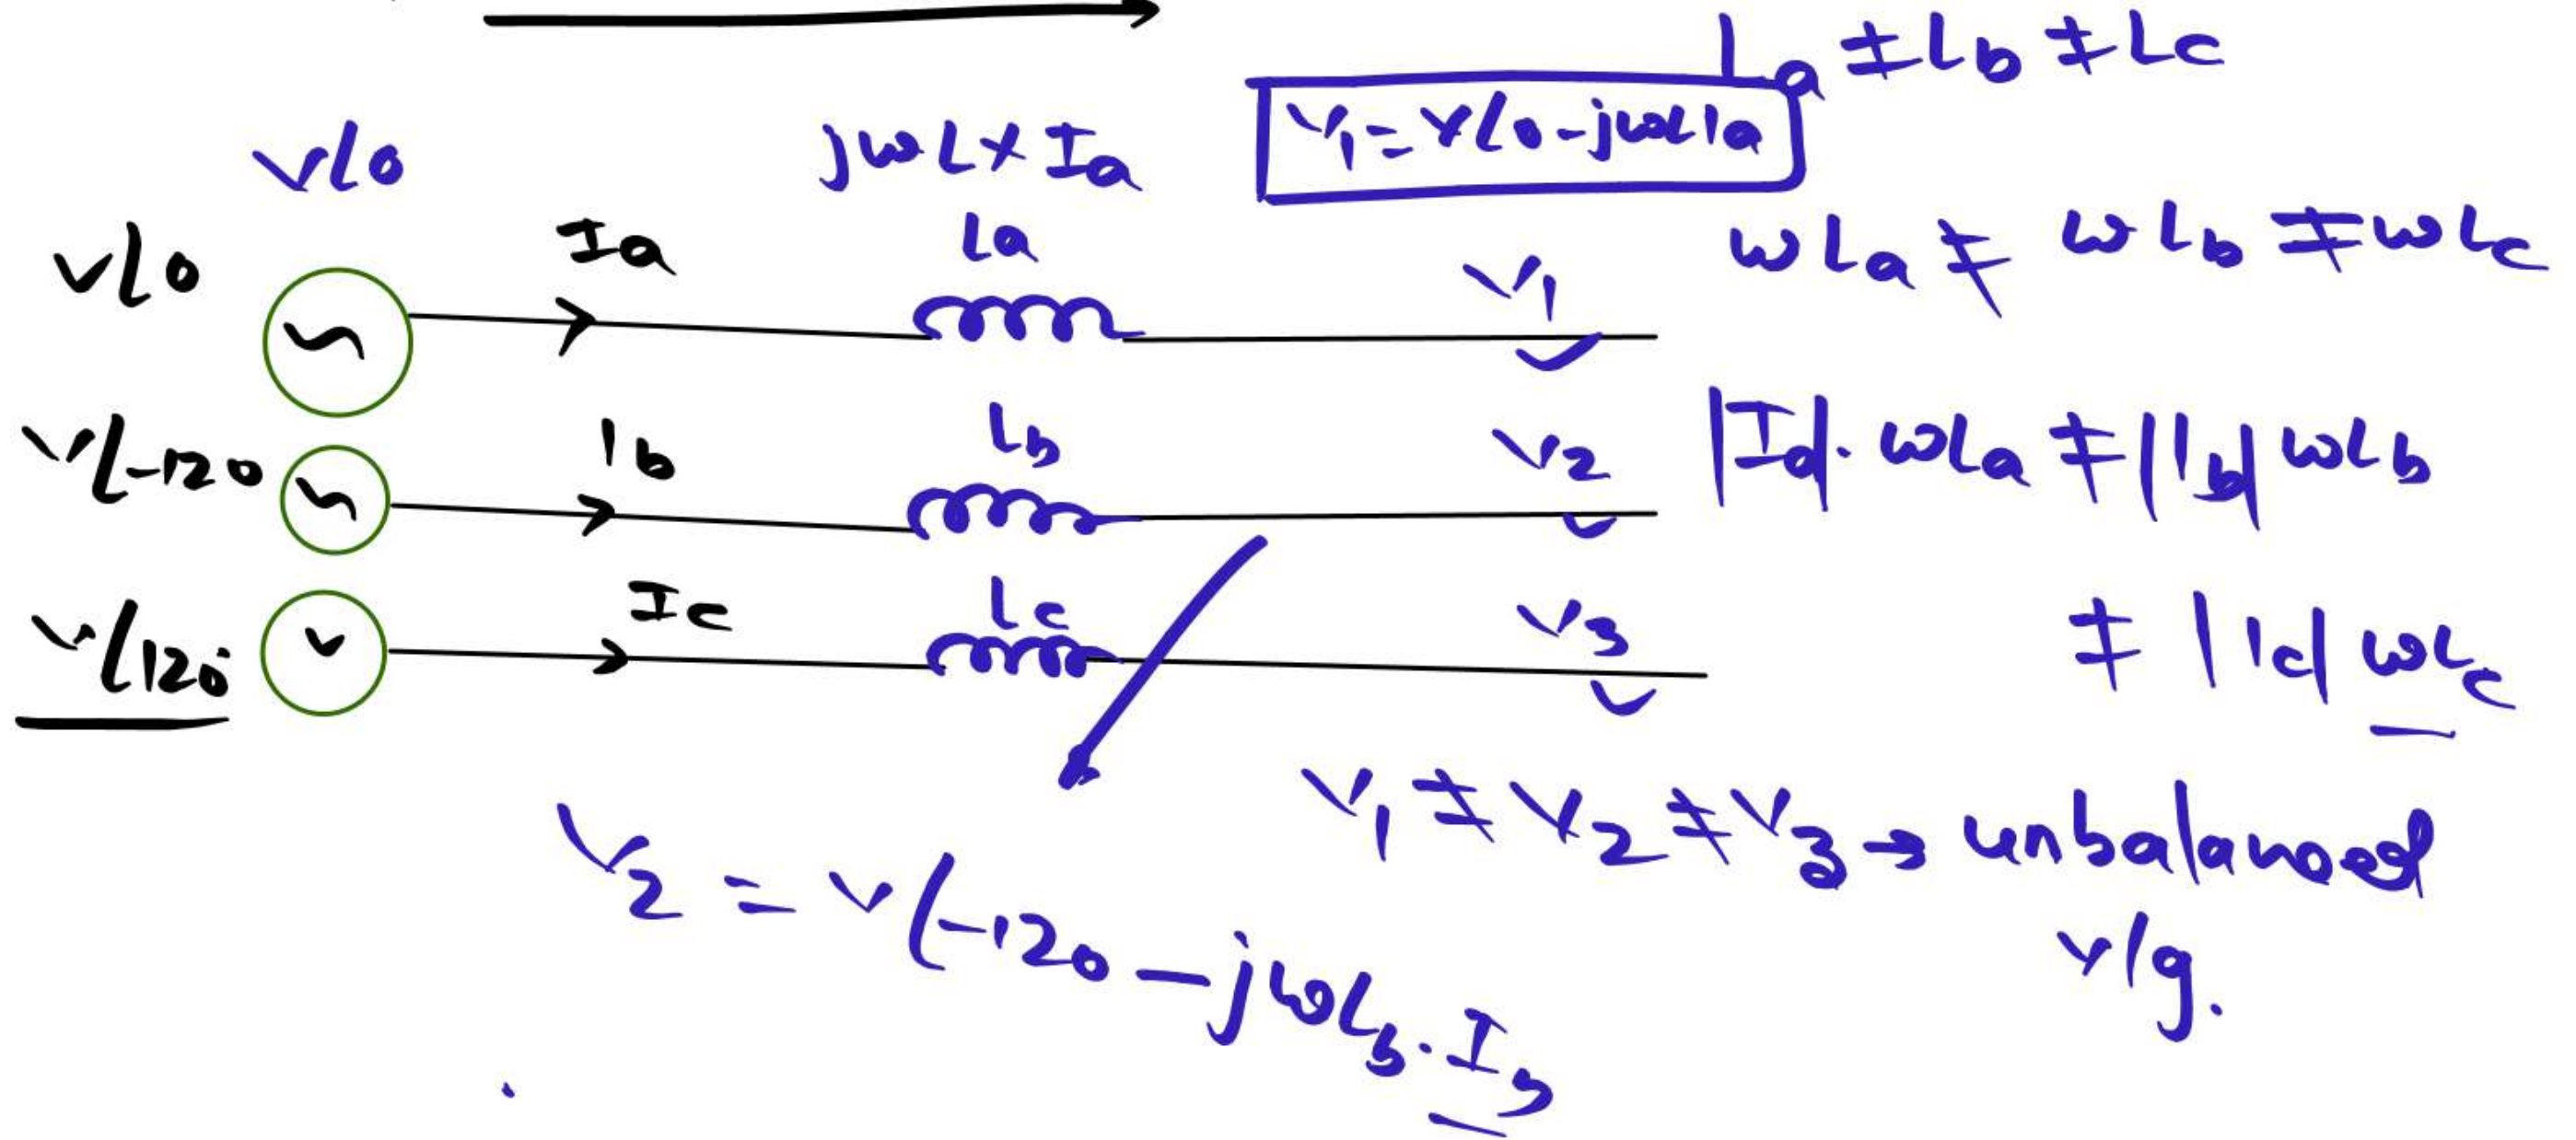 La ≠ Lb ≠ Lc
V1 = V∠0 - jωL Ia
V∠0
jωL x Ia
V∠0
Ia
La
V1
ωLa ≠ ωLb ≠ ωLc
V∠-120
Ib
Lb
V2
|Ia|. ωLa ≠ |Ib| ωLb
V∠120°
Ic
Lc
V3
≠ |Ic| ωLc
V1 ≠ V2 ≠ V3 → unbalanced
v/g.
V2 = V∠-120 - jωLb . Ib